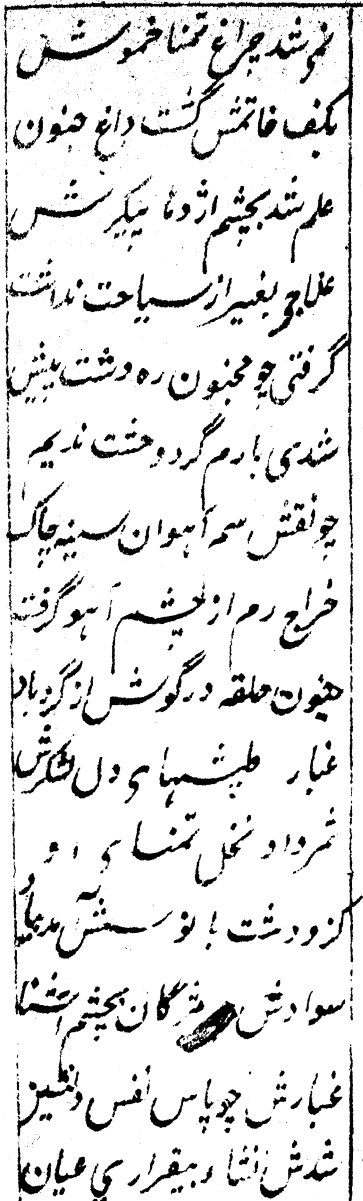 نم شد چراغ تمنا خموش
بکف خاتمش گشت داغ جنون
علم شد بچشم اژدها پیکرش
علاجی بغیر از سیاحت نداشت
گرفتی چو مجنون ره دشت پیش
شدی با رم گرد وحشت ندیم
چو نقش سم آهوان سینه چاک
خراج رم از چشم آهو گرفت
جنون حلقه در گوش از گردباد
غبار طپشهای دل لشکرش
ثمر داد نخل تمنای او
کزو دشت با نو
سوادش مژگان بچشم آشنا
غبارش چو پاس نفس دلنشین
شدش نشاء بیقراری عیان